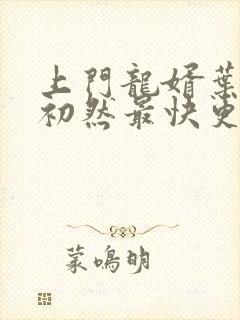 上門龍婿葉
初然最快更
菜鳴明